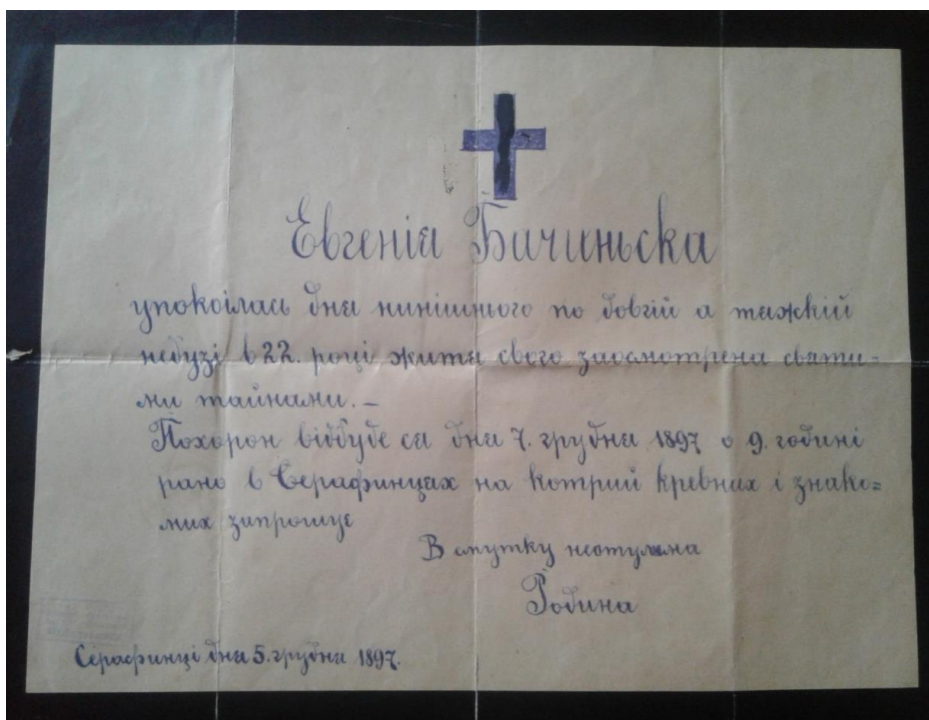 Евгенія Бичиньска
упокоілась дня нинішнього по довгій а тяжкій
недузі в 22. році житя свого заосмотрена святи=
ми тайнами. –
Похорон відбуде ся дня 7. грудня 1897 о 9. годині
рано в Серафинцях на котрий кревних і знако=
мих запрошує
В смутку неотулена
Родина
Серафинці дня 5. грудня 1897.